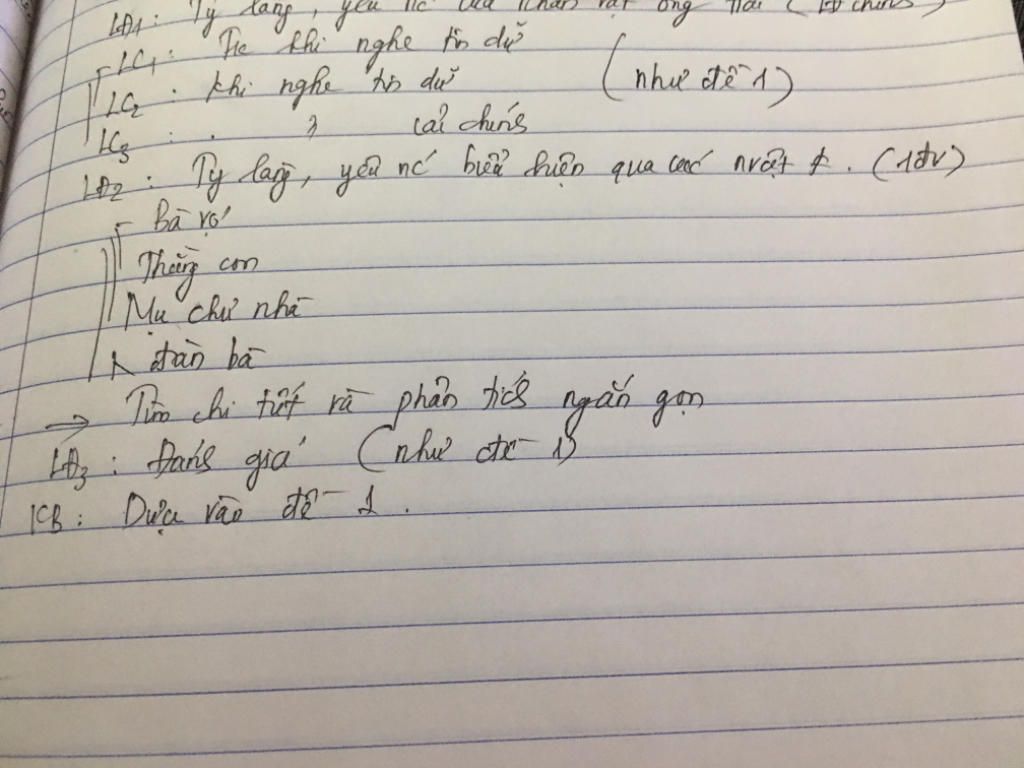 LĐ1: Ty làng, yêu nc của nhân vật ông Hai (LĐ chính)
LC1: Trc khi nghe tin dữ
LC2: khi nghe tin dữ (như đề 1)
LC3: . ? cải chính
LĐ2: Ty làng, yêu nc biểu hiện qua các nvật ≠. (1đv)
Bà vợ
Thằng con
Mụ chủ nhà
đàn bà
→ Tìm chi tiết và phân tích ngắn gọn
LĐ3: Đánh giá (như đề 1)
KB: Dựa vào đề 1.